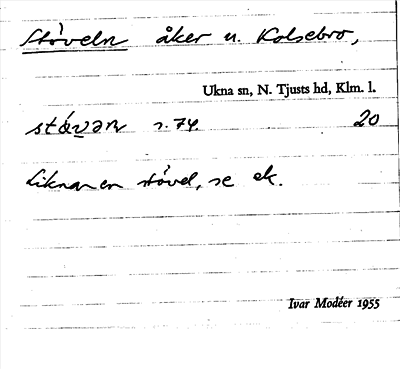 Stöveln åker u. Kolsebro,
Ukna sn, N. Tjusts hd, Klm. l.
s. 74. 20
Liknar en stövel, se ek.
Ivar Modéer 1955